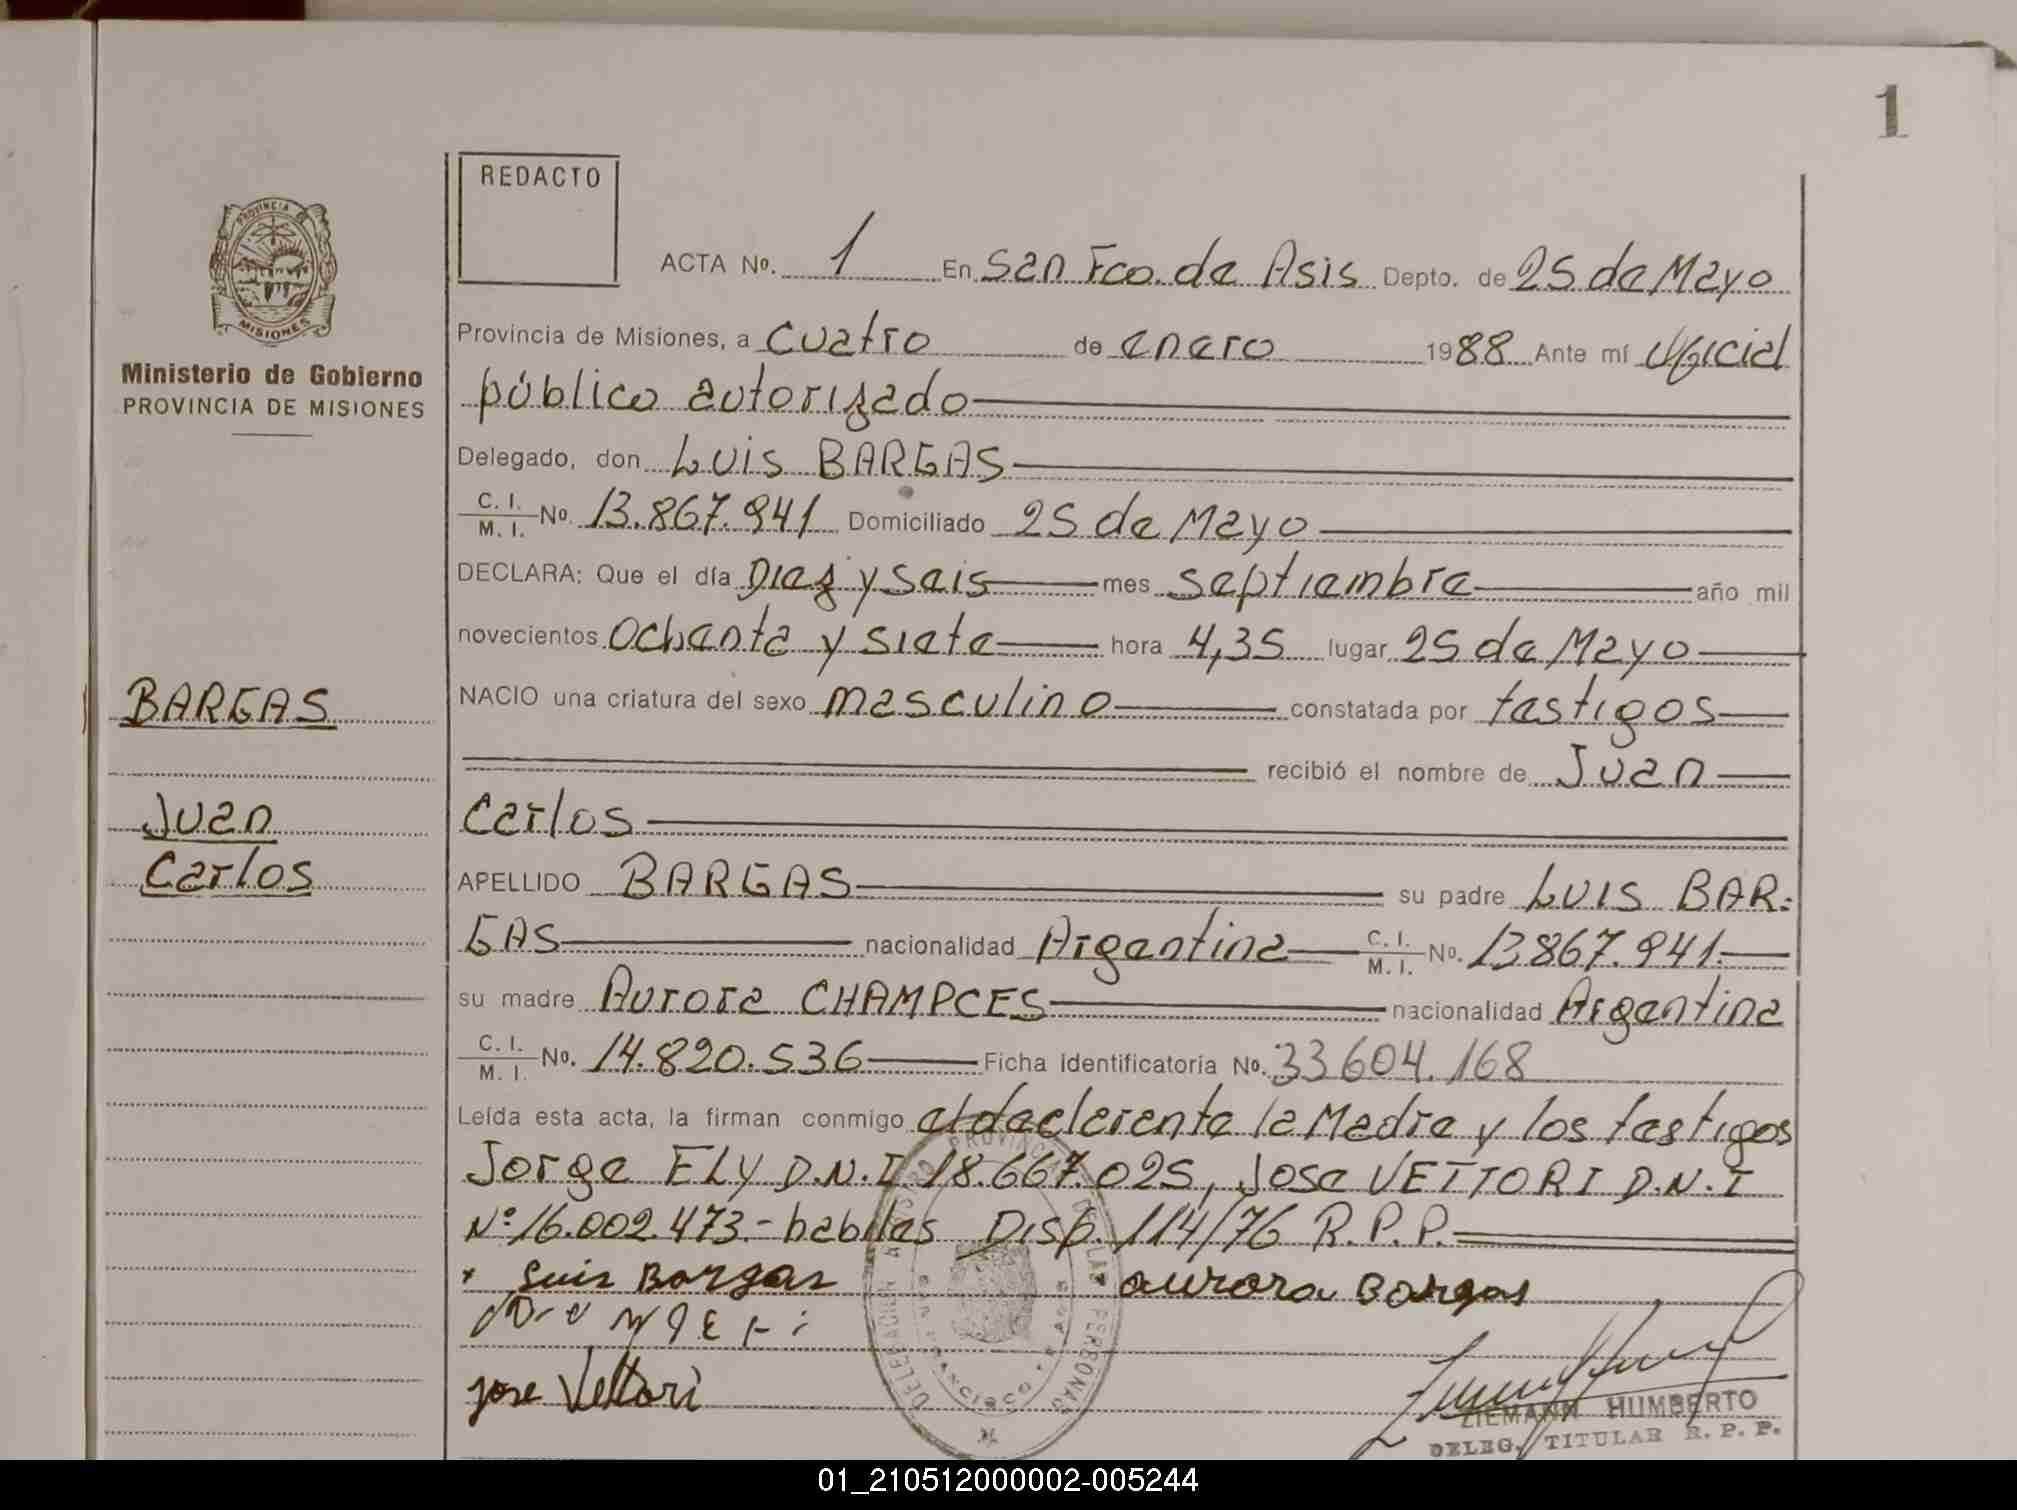 1
REDACTO
PROVINCIA
MISIONES
Ministerio de Gobierno
PROVINCIA DE MISIONES
ACTA Nº. 1 En San Fco. de Asis Depto. de 25 de Mayo
Provincia de Misiones, a cuatro de enero 1988 Ante mí Oficial
público autorizado
Delegado, don Luis BARGAS
C. I. / M. I. Nº 13.867.941 Domiciliado 25 de Mayo
DECLARA: Que el día Diez y seis mes septiembre año mil
novecientos ochenta y siete hora 4,35 lugar 25 de Mayo
BARGAS
NACIO una criatura del sexo masculino constatada por testigos
recibió el nombre de Juan
Juan
Carlos
Carlos
APELLIDO BARGAS su padre Luis BAR-
GAS nacionalidad Argentina C. I. / M. I. Nº. 13.867.941.
su madre Aurora CHAMPCES nacionalidad Argentina
C. I. / M. I. Nº. 14.820.536 Ficha Identificatoria Nº. 33604.168
Leída esta acta, la firman conmigo el declarente la Madre y los testigos
Jorge ELY D.N.I 18.667.025, Jose VETTORI D.N.I
Nº 16.002.473.- habiles Disp. 114/76 R.P.P.
Luis Bargas aurora Bargas
jose Vettori
ZIEMANN HUMBERTO
DELEG. TITULAR R. P. P.
01_210512000002-005244